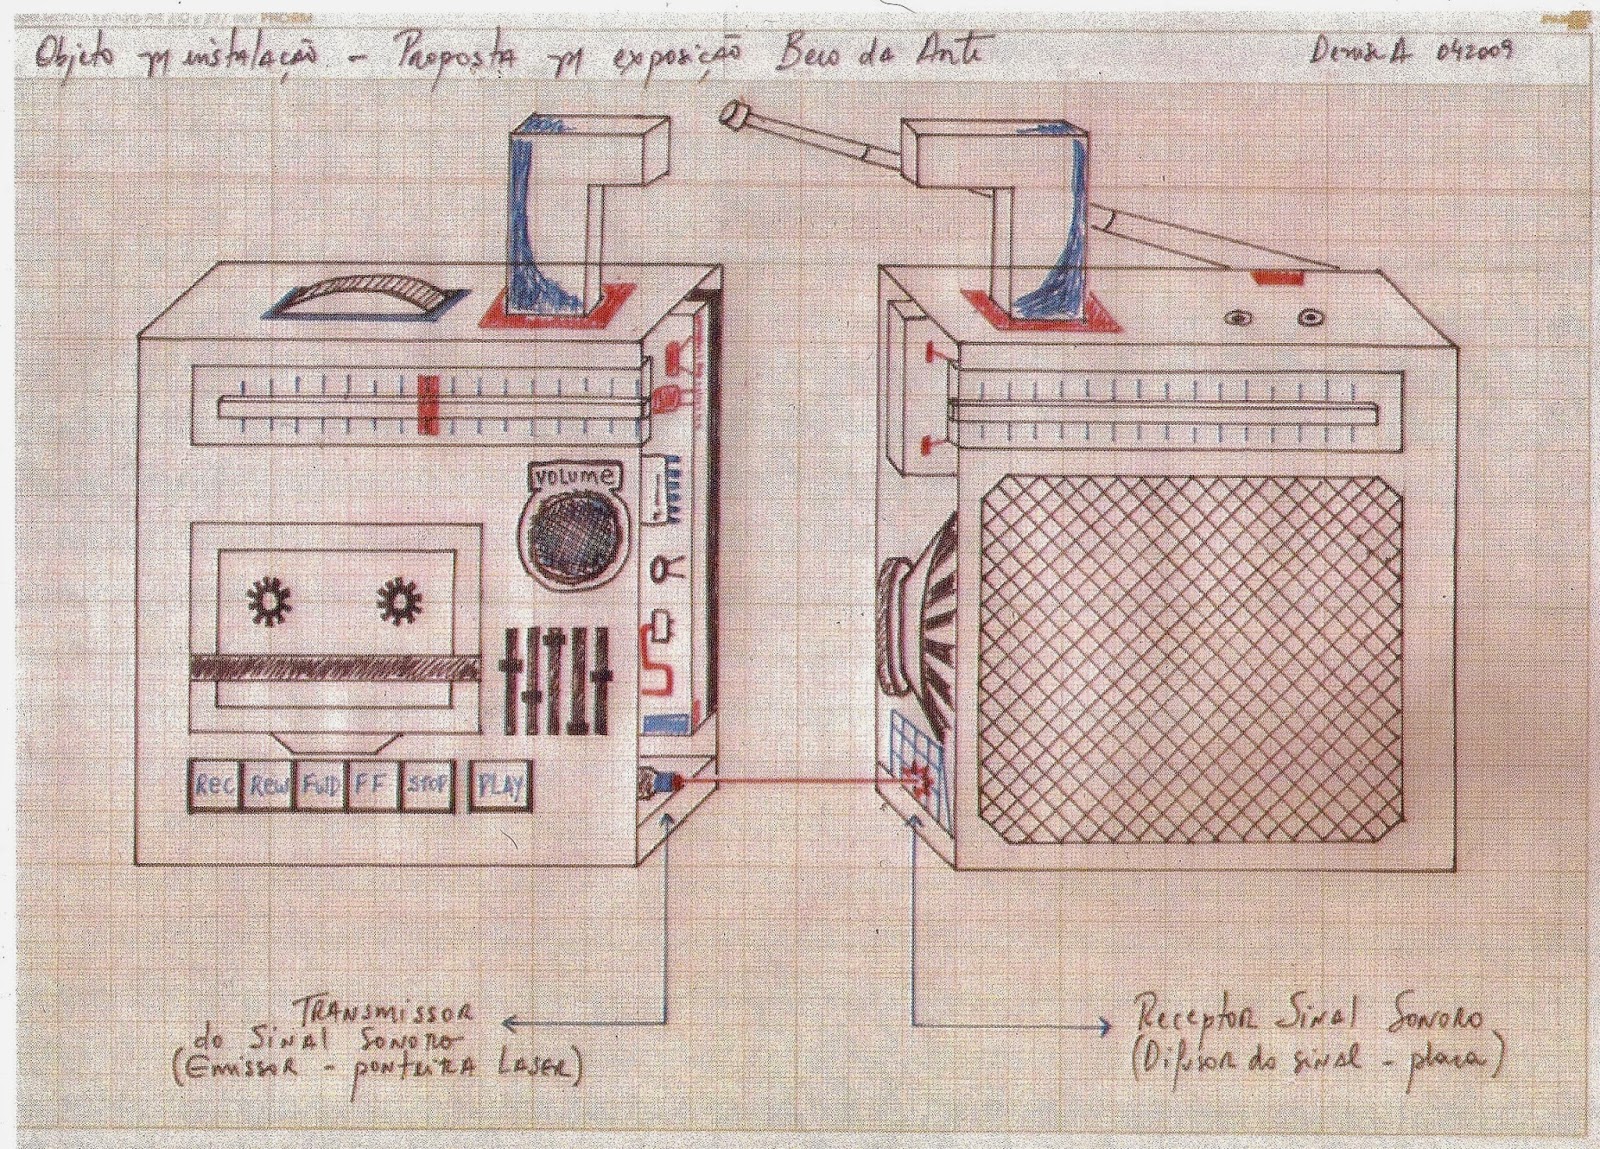 Objeto p/ instalação - Proposta p/ exposição Beco da Arte
Denise A 042009
VOLUME
Rec Rew FWD FF STOP PLAY
TRANSMISSOR
do SINAL SONORO
(Emissor - ponteira LASER)
Receptor Sinal Sonoro
(Difusor do sinal - placa)